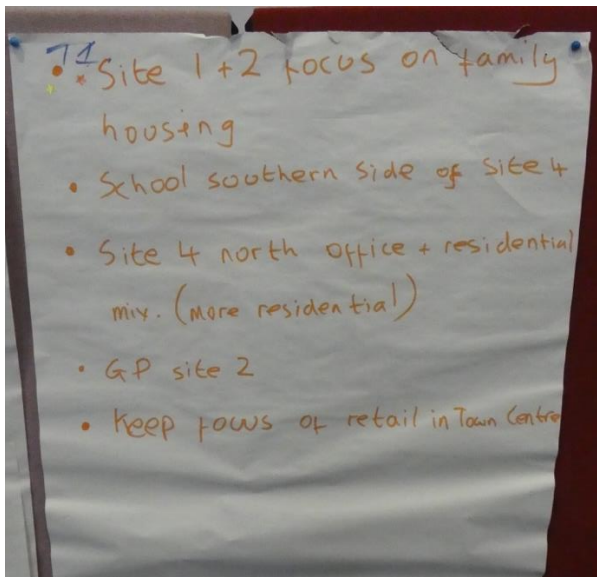 T1
• Site 1+2 focus on family
housing
• School southern side of site 4
• Site 4 north office + residential
mix. (more residential)
• GP site 2
• Keep focus of retail in Town Centre